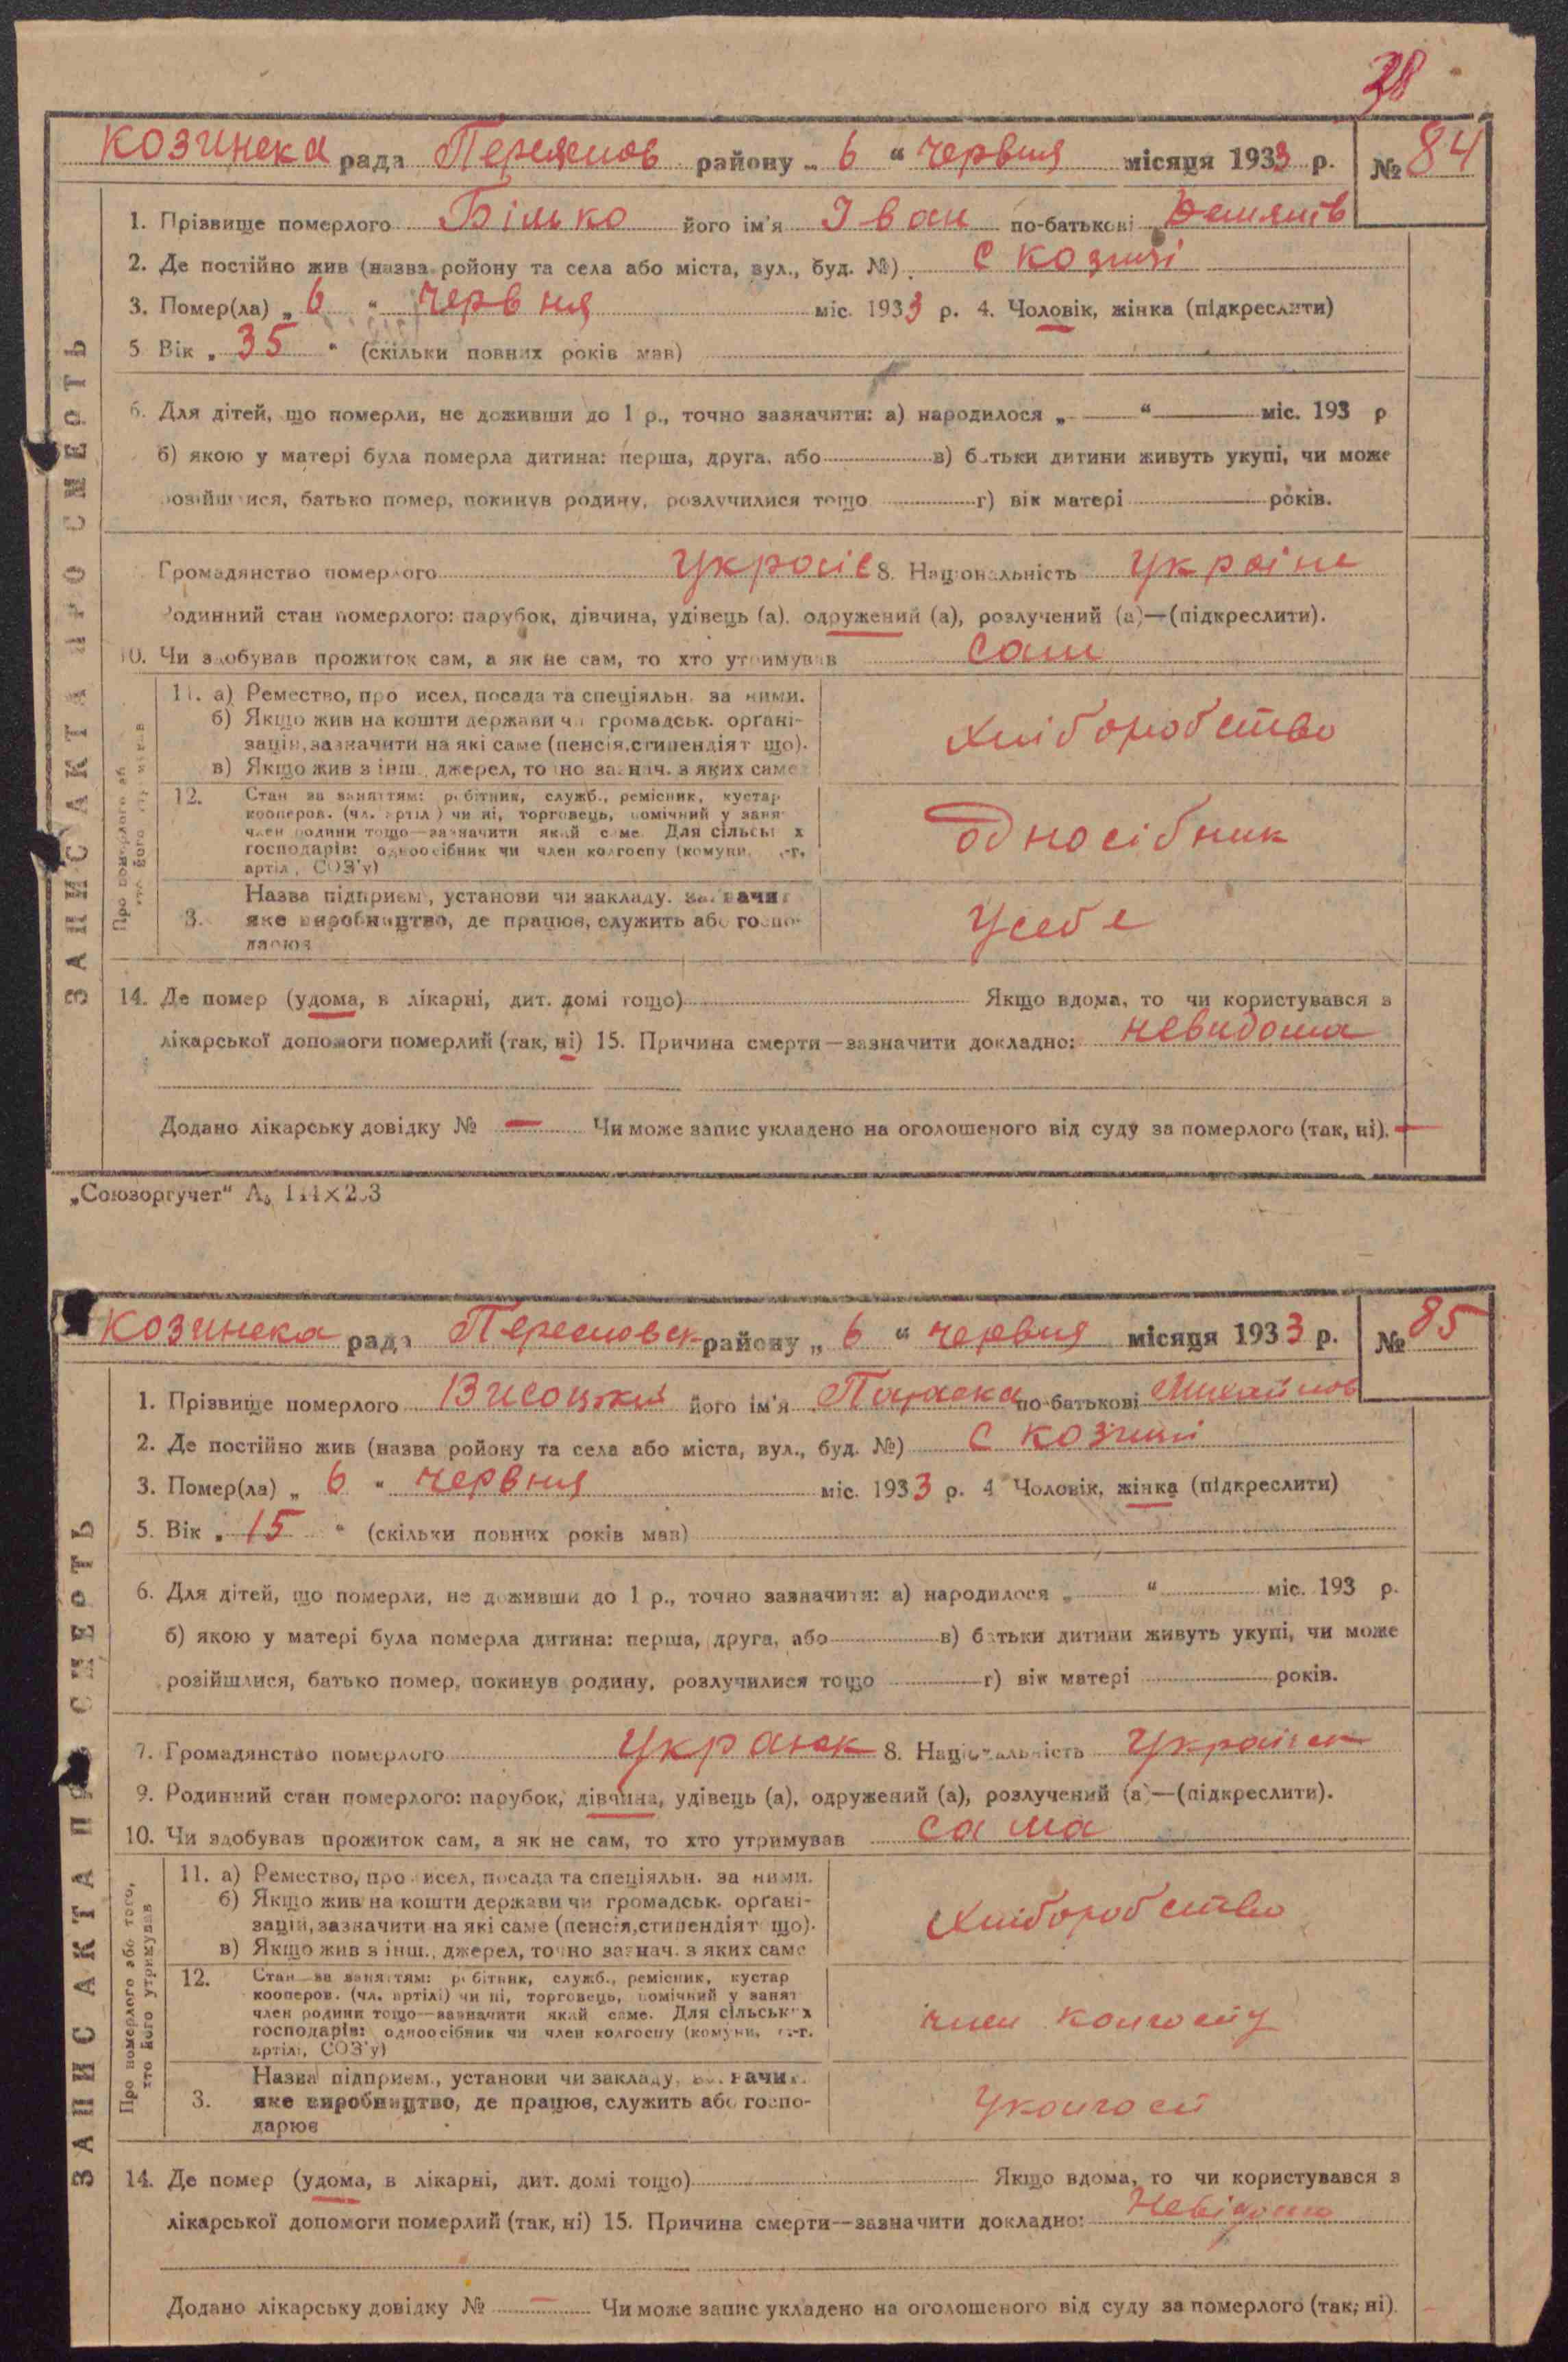 38
Козинска рада Переяслов району „ 6 “ червня місяця 1933 р. № 84
1. Прізвище померлого Білько його ім'я Іван по-батькові
2. Де постійно жив (назва ройону та села або міста, вул., буд. №) с Козині
3. Помер(ла) „ 6 “ червня міс. 1933 р. 4. Чоловік, жінка (підкреслити)
5 Вік „ 35 “ (скільки повних років мав)
6. Для дітей, що померли, не доживши до 1 р., точно зазначити: а) народилося „ — “ — міс. 193 р
б) якою у матері була померла дитина: перша, друга, або в) батьки дитини живуть укупі, чи може
розійшлися, батько помер, покинув родину, розлучилися тощо г) вік матері років.
Громадянство померлого 8. Національність Україн
Родинний стан померлого: парубок, дівчина, удівець (а), одружений (а), розлучений (а)—(підкреслити).
10. Чи здобував прожиток сам, а як не сам, то хто утримував сам
ЗАПИС АКТА ПРО СМЕРТЬ
11. а) Ремество, про исел, посада та спеціяльн. за ними.
б) Якщо жив на кошти держави чи громадськ. органі-
зацій, зазначити на які саме (пенсія, стипендія т що).
в) Якщо жив з інш., джерел, точно зазнач. з яких саме
хліборобство
12. Стан за заняттям: робітник, служб., ремісник, кустар
кооперов. (чл. артіл) чи ні, торговець, помічний у заня
член родини тощо—зазначити який саме. Для сільськ х
господарів: одноосібник чи член колгоспу (комуни, -г,
артіл, СОЗ'у)
односібник
Назва підприєм., установи чи закладу. зазначи
3. яке виробництво, де працює, служить або госпо-
дарює
Усебе
14. Де помер (удома, в лікарні, дит. домі тощо) Якщо вдома, то чи користувався з
лікарської допомоги померлий (так, ні) 15. Причина смерти—зазначити докладно: невидома
Додано лікарську довідку № — Чи може запис укладено на оголошеного від суду за померлого (так, ні).
„Союзоргучет“
Козинска рада району „ 6 “ червня місяця 1933 р. № 85
1. Прізвище померлого Висоцкий його ім'я Параска по-батькові Михайлов
2. Де постійно жив (назва ройону та села або міста, вул., буд. №) с Козині
3. Помер(ла) „ 6 “ червня міс. 1933 р. 4 Чоловік, жінка (підкреслити)
5. Вік „ 15 “ (скільки повних років мав)
6. Для дітей, що померли, не доживши до 1 р., точно зазначити: а) народилося „ “ міс. 193 р.
б) якою у матері була померла дитина: перша, друга, або в) батьки дитини живуть укупі, чи може
розійшлися, батько помер, покинув родину, розлучилися тощо г) вік матері років.
7. Громадянство померлого 8. Національність
9. Родинний стан померлого: парубок, дівчина, удівець (а), одружений (а), розлучений (а)—(підкреслити).
10. Чи здобував прожиток сам, а як не сам, то хто утримував сама
ЗАПИС АКТА ПРО СМЕРТЬ
Про померлого або того,
хто його утримував
11. а) Ремество, про исел, посада та спеціяльн. за ними.
б) Якщо жив на кошти держави чи громадськ. органі-
зацій, зазначити на які саме (пенсія, стипендія т що).
в) Якщо жив з інш., джерел, точно зазнач. з яких саме
хліборобство
12. Стан за заняттям: робітник, служб., ремісник, кустар
кооперов. (чл. артілі) чи ні, торговець, помічний у занят
член родини тощо—зазначити який саме. Для сільськ х
господарів: одноосібник чи член колгоспу (комуни, -г.
артілі, СОЗ'у)
член колгоспу
Назва підприєм., установи чи закладу, зазначи
3. яке виробництво, де працює, служить або госпо-
дарює
14. Де помер (удома, в лікарні, дит. домі тощо) Якщо вдома, то чи користувався з
лікарської допомоги померлий (так, ні) 15. Причина смерти—зазначити докладно: Невідомо
Додано лікарську довідку № — Чи може запис укладено на оголошеного від суду за померлого (так, ні).